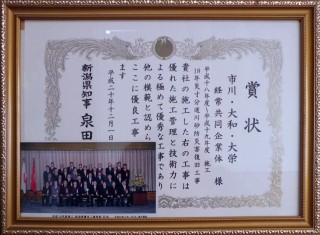 賞状
市川・大和・大栄
経常共同企業体 様
平成十八年度～平成十九年度 施工
貴社の施工した右の工事は
優れた施工管理と技術力に
よる極めて優秀な工事であり
他の模範と認められ
ここに優良工事
ます
平成二十年十二月一日
新潟県知事 泉田